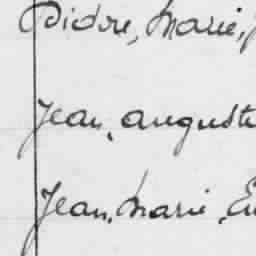 Isidore, Marie,
Jean, Auguste
Jean, Marie, Eu